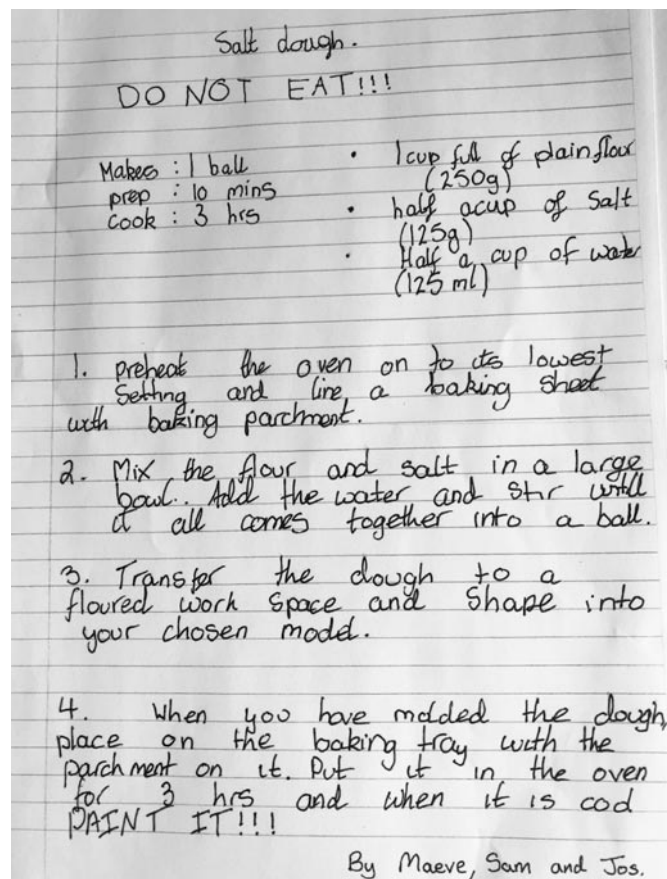 Salt dough.
DO NOT EAT!!!
Makes : 1 ball
prep : 10 mins
cook : 3 hrs
• 1 cup full of plain flour
(250g)
• half a cup of Salt
(125g)
• Half a cup of water
(125 ml)
1. preheat the oven on to its lowest
Setting and line a baking sheet
with baking parchment.
2. Mix the flour and salt in a large
bowl.. Add the water and stir until
it all comes together into a ball.
3. Transfer the dough to a
floured work space and Shape into
your chosen model.
4. When you have molded the dough,
place on the baking tray with the
parchment on it. Put it in the oven
for 3 hrs and when it is cool
PAINT IT!!!
By Maeve, Sam and Jos.